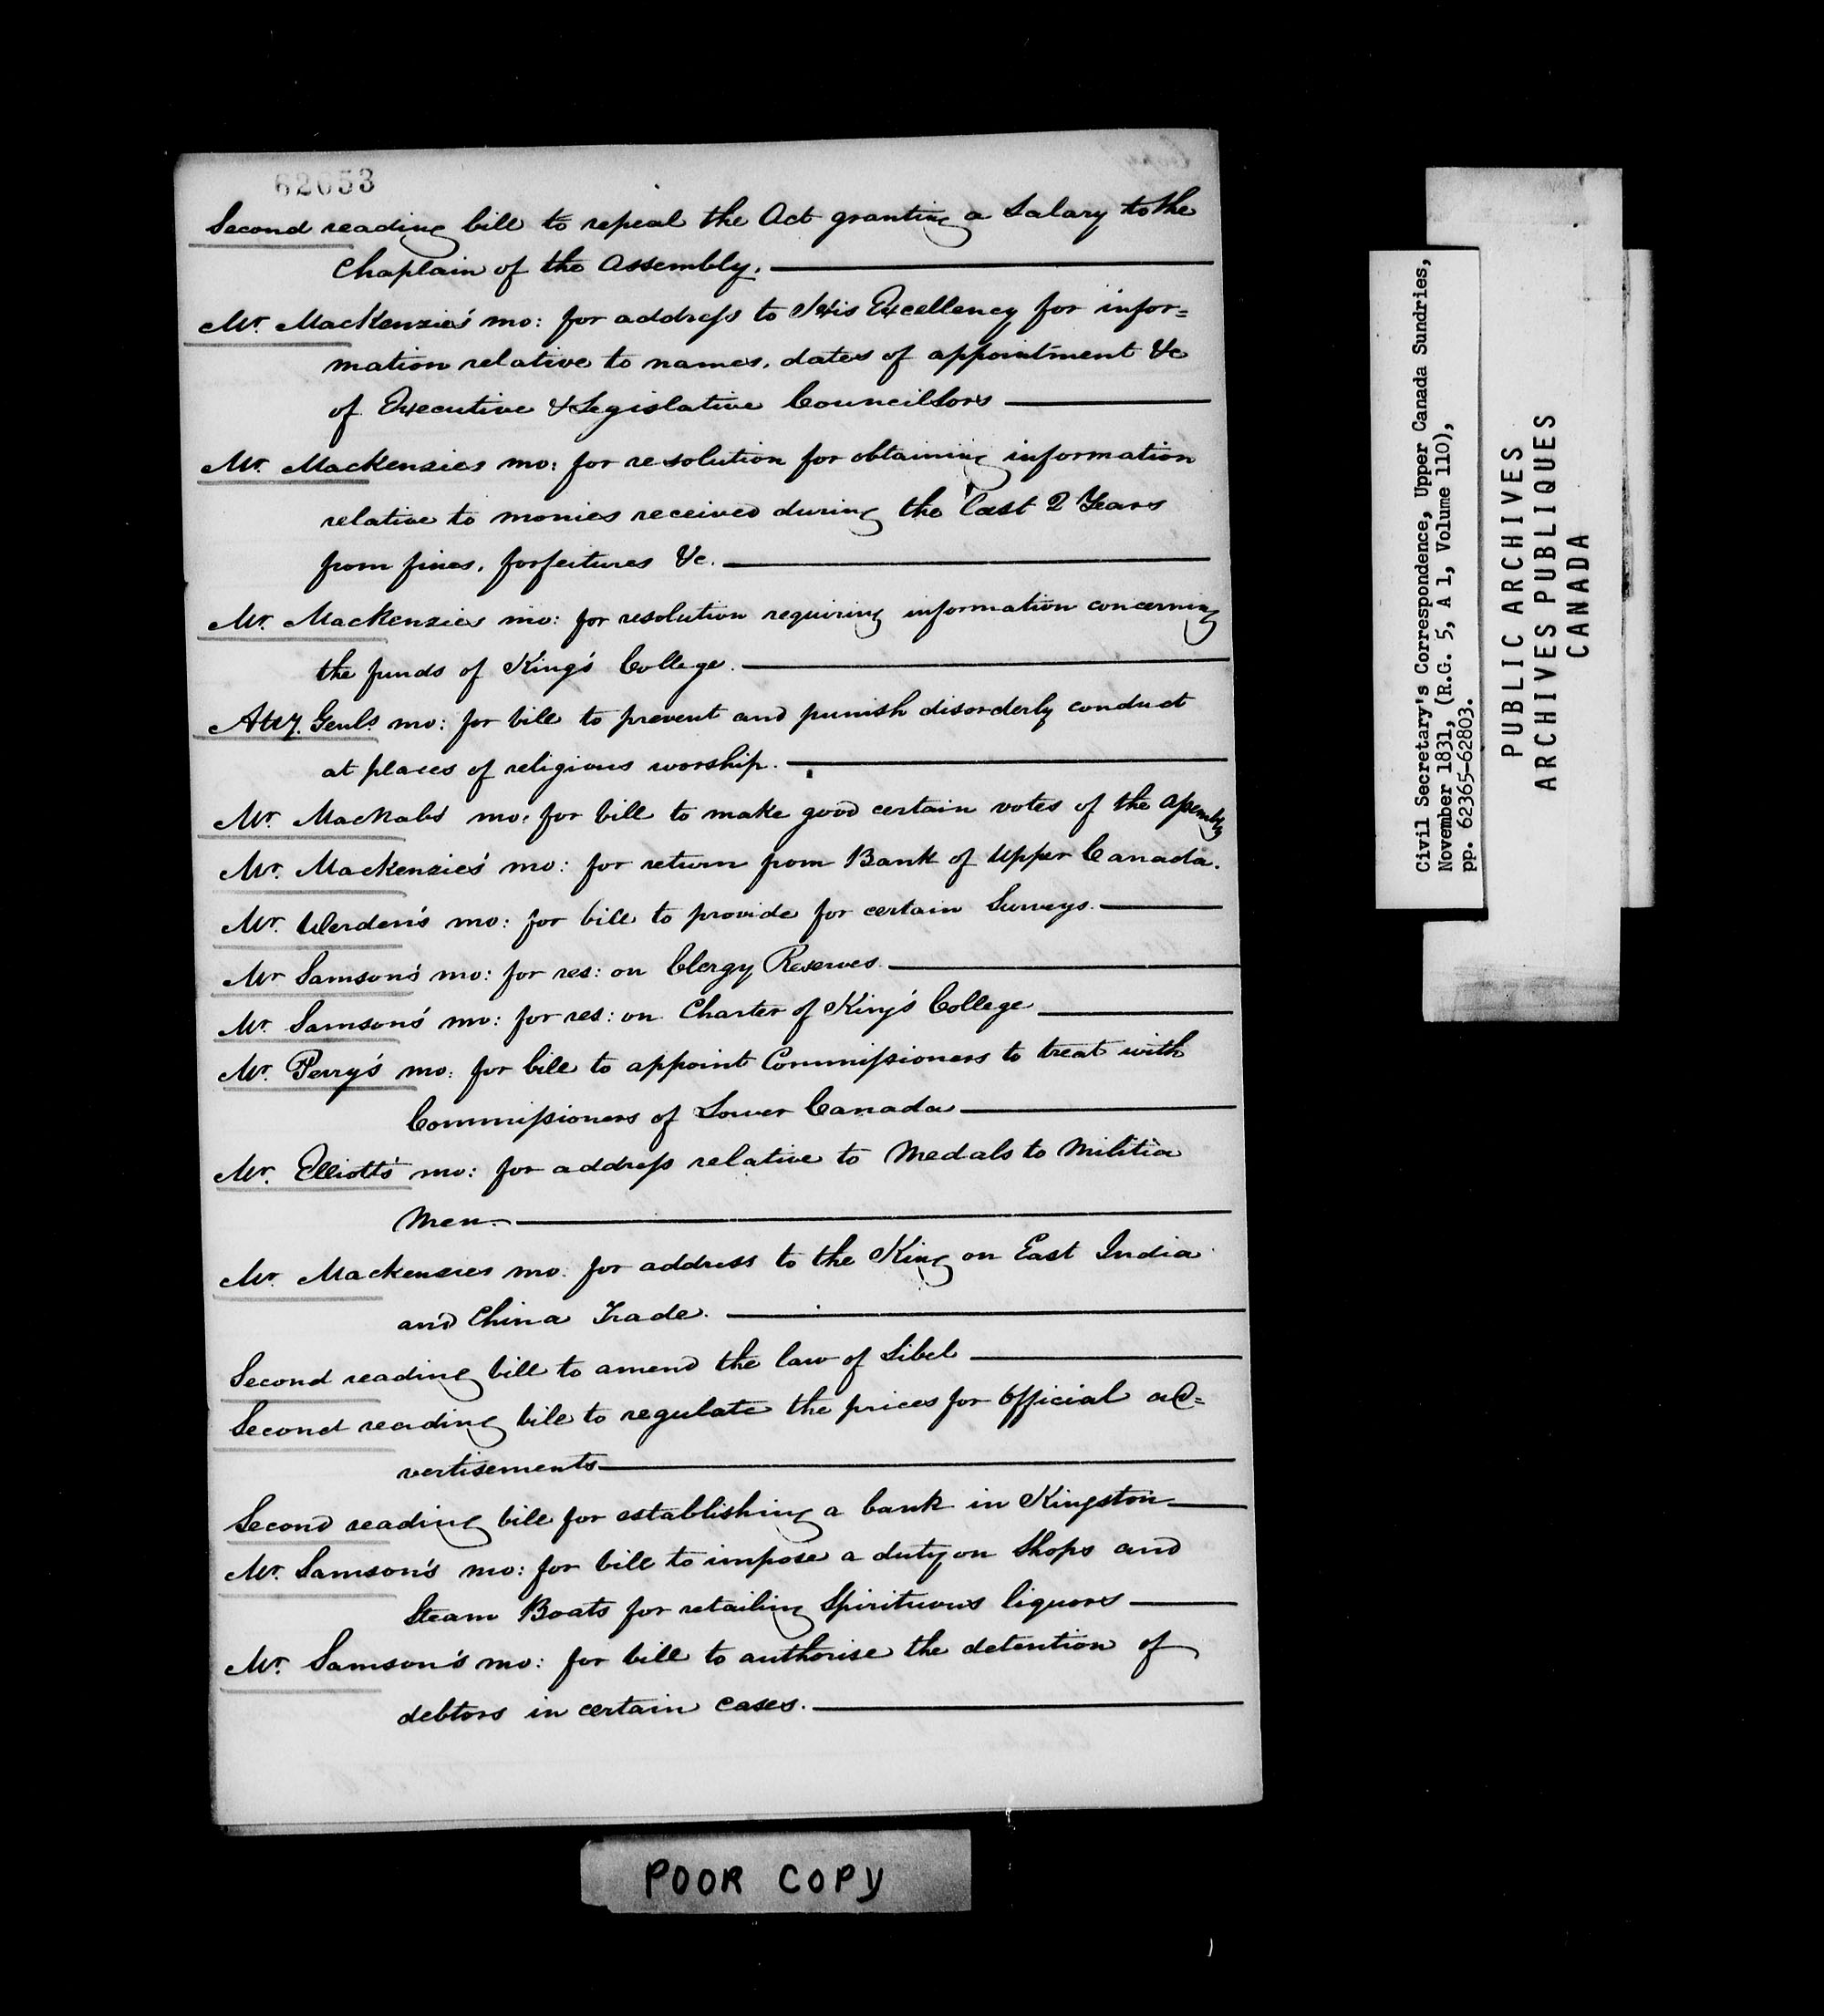 62653
Second reading bill to repeal the Act granting a Salary to the
Chaplain of the Assembly.
Mr. MacKenzie's mo: for address to His Excellency for infor=
mation relative to names, dates of appointment &c
of Executive & Legislative Councillors
Mr. MacKenzies mo: for resolution for obtaining information
relative to monies received during the last 2 Years
from fines, forfeitures &c.
Mr. MacKenzies mo: for resolution requiring information concerning
the funds of King's College.
Atty. Genls. mo: for bill to prevent and punish disorderly conduct
at places of religious worship.
Mr. MacNabs mo: for bill to make good certain votes of the Assembly
Mr. MacKenzie's mo: for return from Bank of Upper Canada.
Mr. Werden's mo: for bill to provide for certain Surveys.
Mr Samson's mo: for res: on Clergy Reserves.
Mr. Samson's mo: for res: on Charter of King's College
Mr. Perry's mo: for bill to appoint Commissioners to treat with
Commissioners of Lower Canada
Mr. Elliott's mo: for address relative to Medals to Militia
Men.
Mr. Mackenzies mo: for address to the King on East India
and China Trade.
Second reading bill to amend the law of Libel
Second reading bill to regulate the prices for Official ad=
vertisements
Second reading bill for establishing a bank in Kingston
Mr. Samson's mo: for bill to impose a duty on Shops and
Steam Boats for retailing Spirituous liquors
Mr. Samson's mo: for bill to authorise the detention of
debtors in certain cases.
POOR COPY
Civil Secretary's Correspondence, Upper Canada Sundries,
November 1831, (R.G. 5, A 1, Volume 110),
pp. 62365-62803.
PUBLIC ARCHIVES
ARCHIVES PUBLIQUES
CANADA